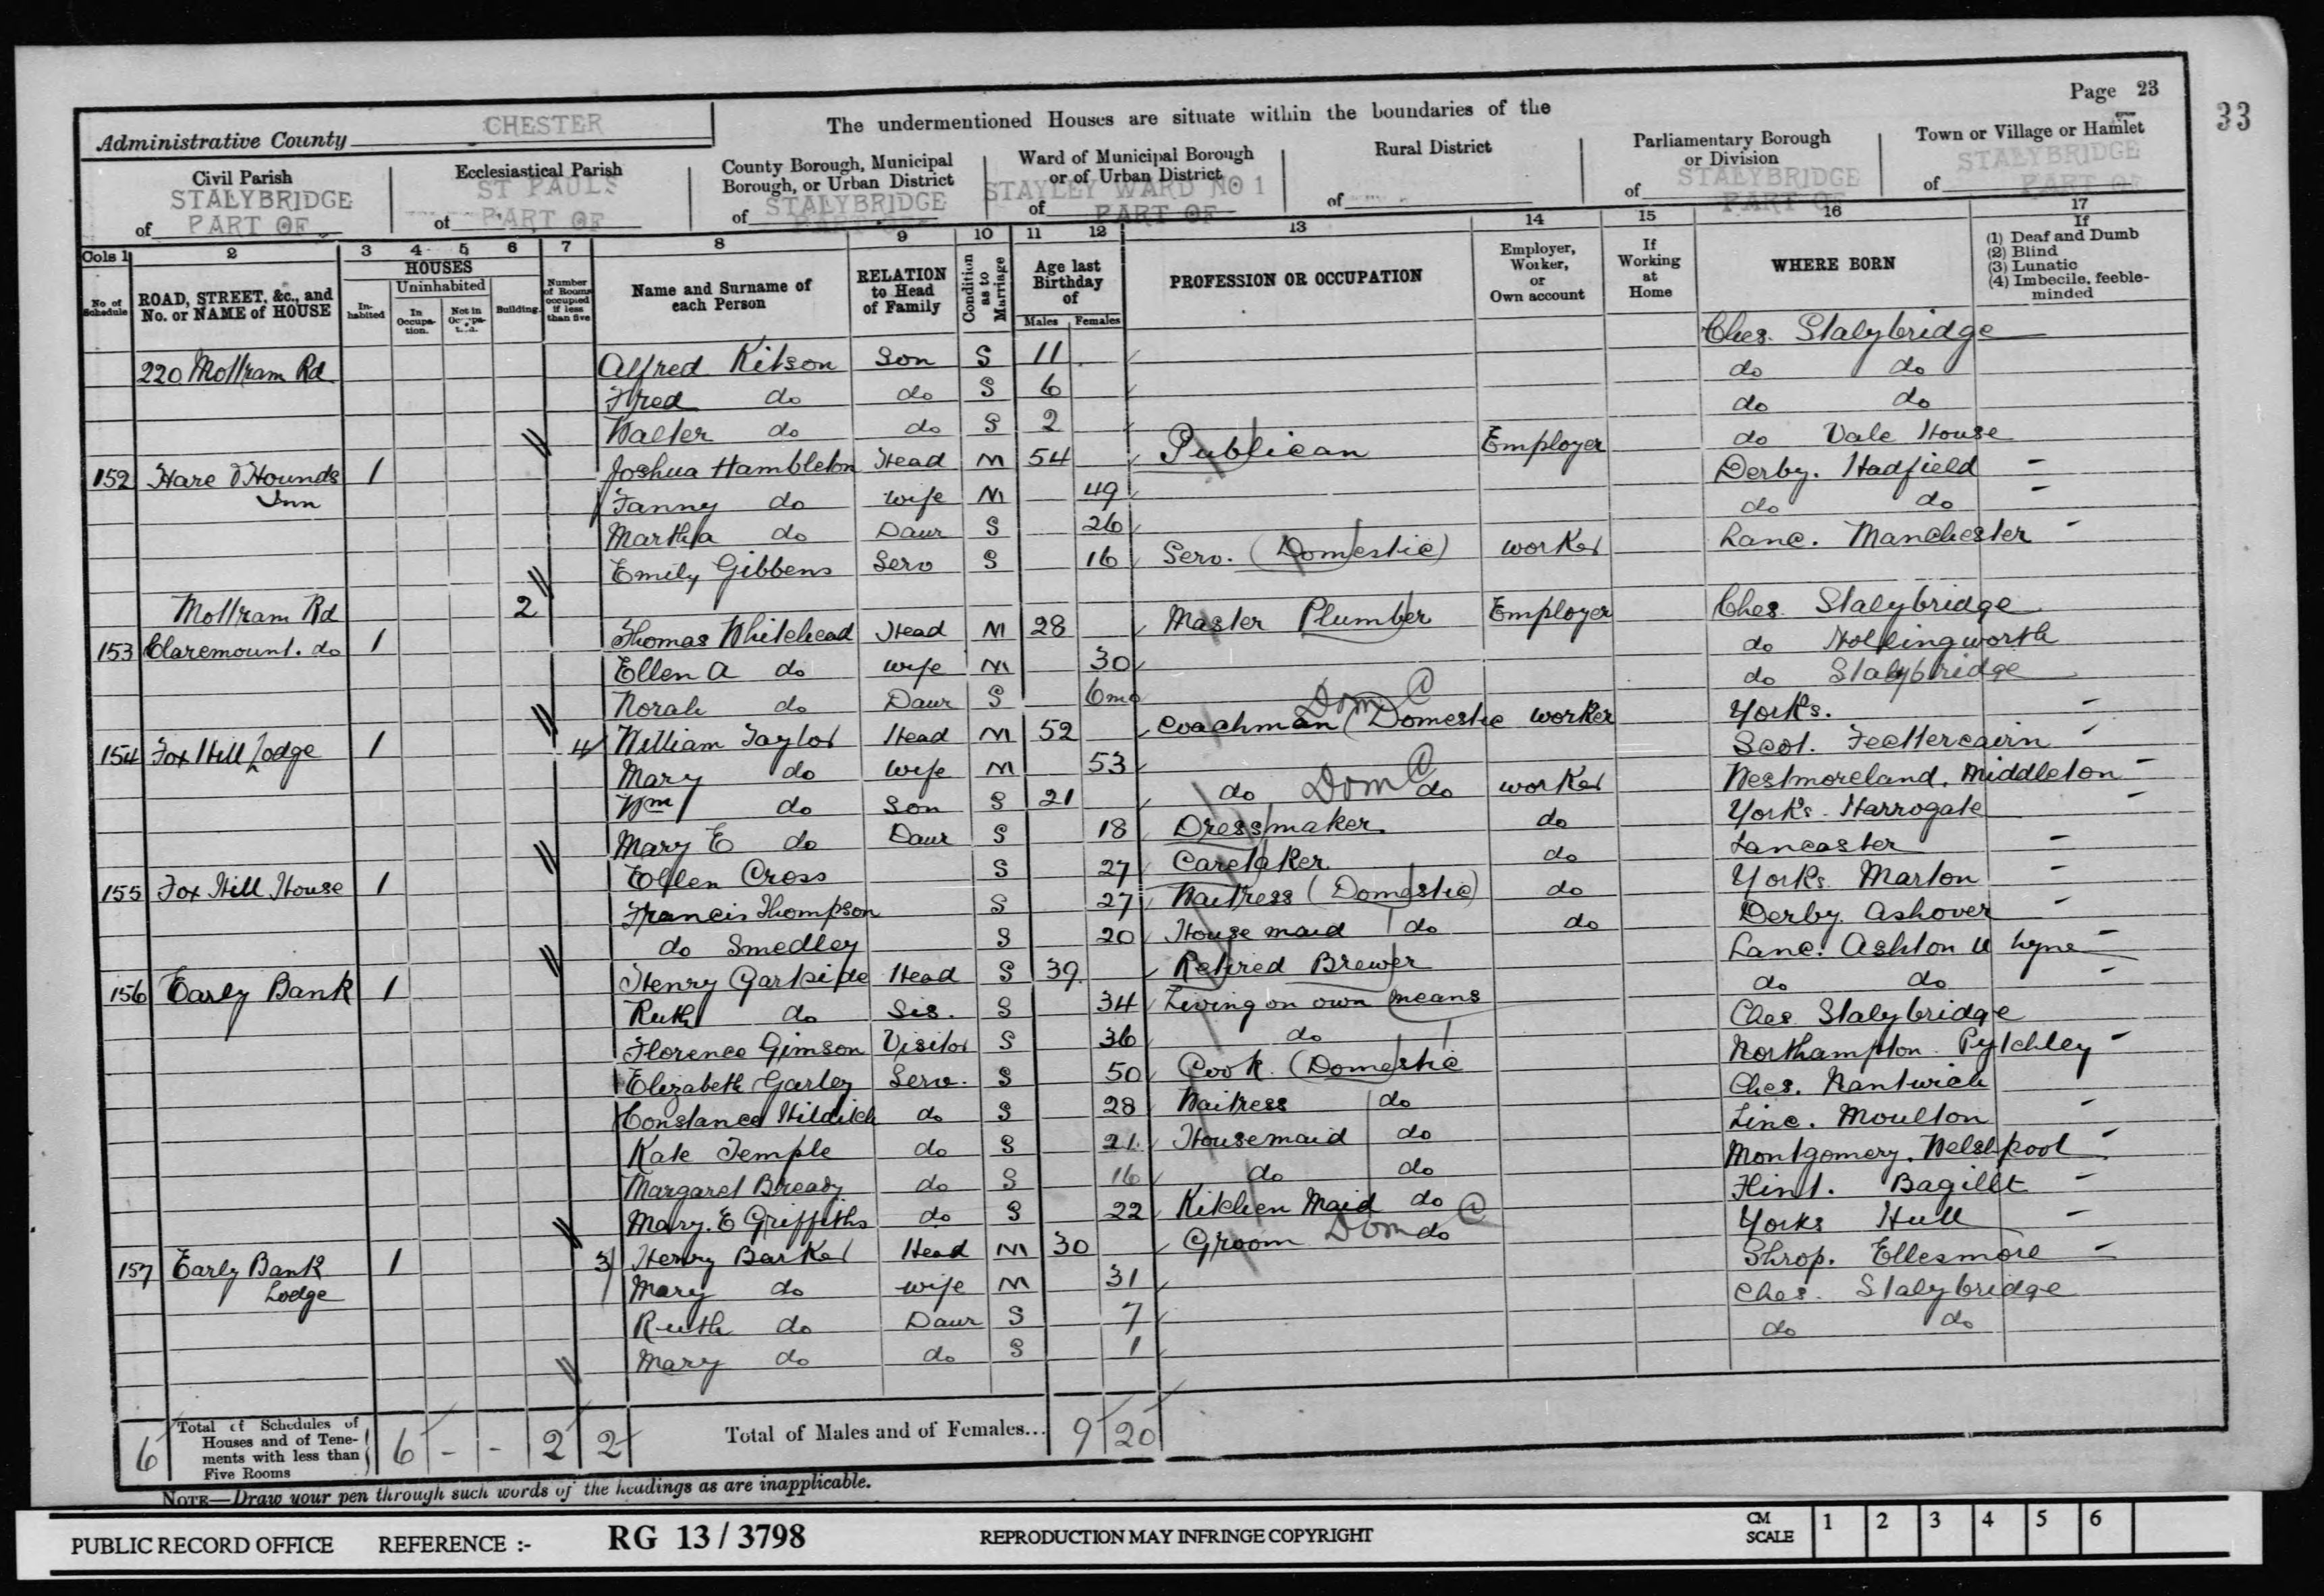 Page 23
33
Administrative County CHESTER
The undermentioned Houses are situate within the boundaries of the
Civil Parish of STALYBRIDGE PART OF
Ecclesiastical Parish of ST PAULS PART OF
County Borough, Municipal Borough, or Urban District of STALYBRIDGE PART OF
Ward of Municipal Borough or of Urban District of STAYLEY WARD NO 1 PART OF
Rural District of
Parliamentary Borough or Division of STALYBRIDGE PART OF
Town or Village or Hamlet of STALYBRIDGE PART OF
Cols 1 2 3 4 5 6 7 8 9 10 11 12 13 14 15 16 17
No. of Schedule
ROAD, STREET, &c., and No. or NAME of HOUSE
HOUSES
Inhabited
Uninhabited
In Occupation.
Not in Occupa-
Building.
Number of Rooms occupied if less than five
Name and Surname of each Person
RELATION to Head of Family
Condition as to Marriage
Age last Birthday of
Males Females
PROFESSION OR OCCUPATION
Employer, Worker, or Own account
If Working at Home
WHERE BORN
If
(1) Deaf and Dumb
(2) Blind
(3) Lunatic
(4) Imbecile, feeble-minded
220 Mottram Rd Alfred Kitson Son S 11 Ches. Stalybridge
Fred do do S 6 do do
Walter do do S 2 do do
152 Hare & Hounds Inn 1 Joshua Hambleton Head M 54 Publican Employer do Vale House
Fanny do Wife M 49 Derby. Hadfield
Martha do Daur S 26 do do
Emily Gibbens Serv S 16 Serv. (Domestic) Worker Lanc. Manchester
Mottram Rd 2
153 Claremount. do 1 Thomas Whitehead Head M 28 Master Plumber Employer Ches. Stalybridge
Ellen A do Wife M 30 do Hollingworth
Norah do Daur S 6mo do Stalybridge
154 Fox Hill Lodge 1 4 William Taylor Head M 52 Coachman (Domestic Dom Worker Yorks.
Mary do Wife M 53 Scot. Fettercairn
Wm do Son S 21 do Dom do Worker Westmoreland. Middleton
Mary E do Daur S 18 Dressmaker do Yorks. Harrogate
155 Fox Hill House 1 Ellen Cross S 27 Caretaker do Lancaster
Francis Thompson S 27 Waitress (Domestic) do Yorks Marton
do Smedley S 20 Housemaid do do Derby Ashover
156 Early Bank 1 Henry Garside Head S 39 Retired Brewer Lanc. Ashton U Lyne
Ruth do Sis. S 34 Living on own means do do
Florence Gimson Visitor S 36 do Ches Stalybridge
Elizabeth Garley Serv. S 50 Cook (Domestic Northampton Pytchley
Constance Hilditch do S 28 Waitress do Ches. Nantwich
Kate Temple do S 21 Housemaid do Linc. Moulton
Margaret Bready do S 16 do do Montgomery. Welshpool
Mary. E Griffiths do S 22 Kitchen Maid do Flint. Bagillt
157 Early Bank Lodge 1 3 Henry Barker Head M 30 Groom Dom do Yorks Hull
Mary do Wife M 31 Shrop. Ellesmore
Ruth do Daur S 7 Ches. Stalybridge
Mary do do S 1 do do
6 Total of Schedules of Houses and of Tenements with less than Five Rooms 6 - - 2 2 Total of Males and of Females... 9 20
NOTE—Draw your pen through such words of the headings as are inapplicable.
PUBLIC RECORD OFFICE REFERENCE :- RG 13 / 3798 REPRODUCTION MAY INFRINGE COPYRIGHT CM SCALE 1 2 3 4 5 6